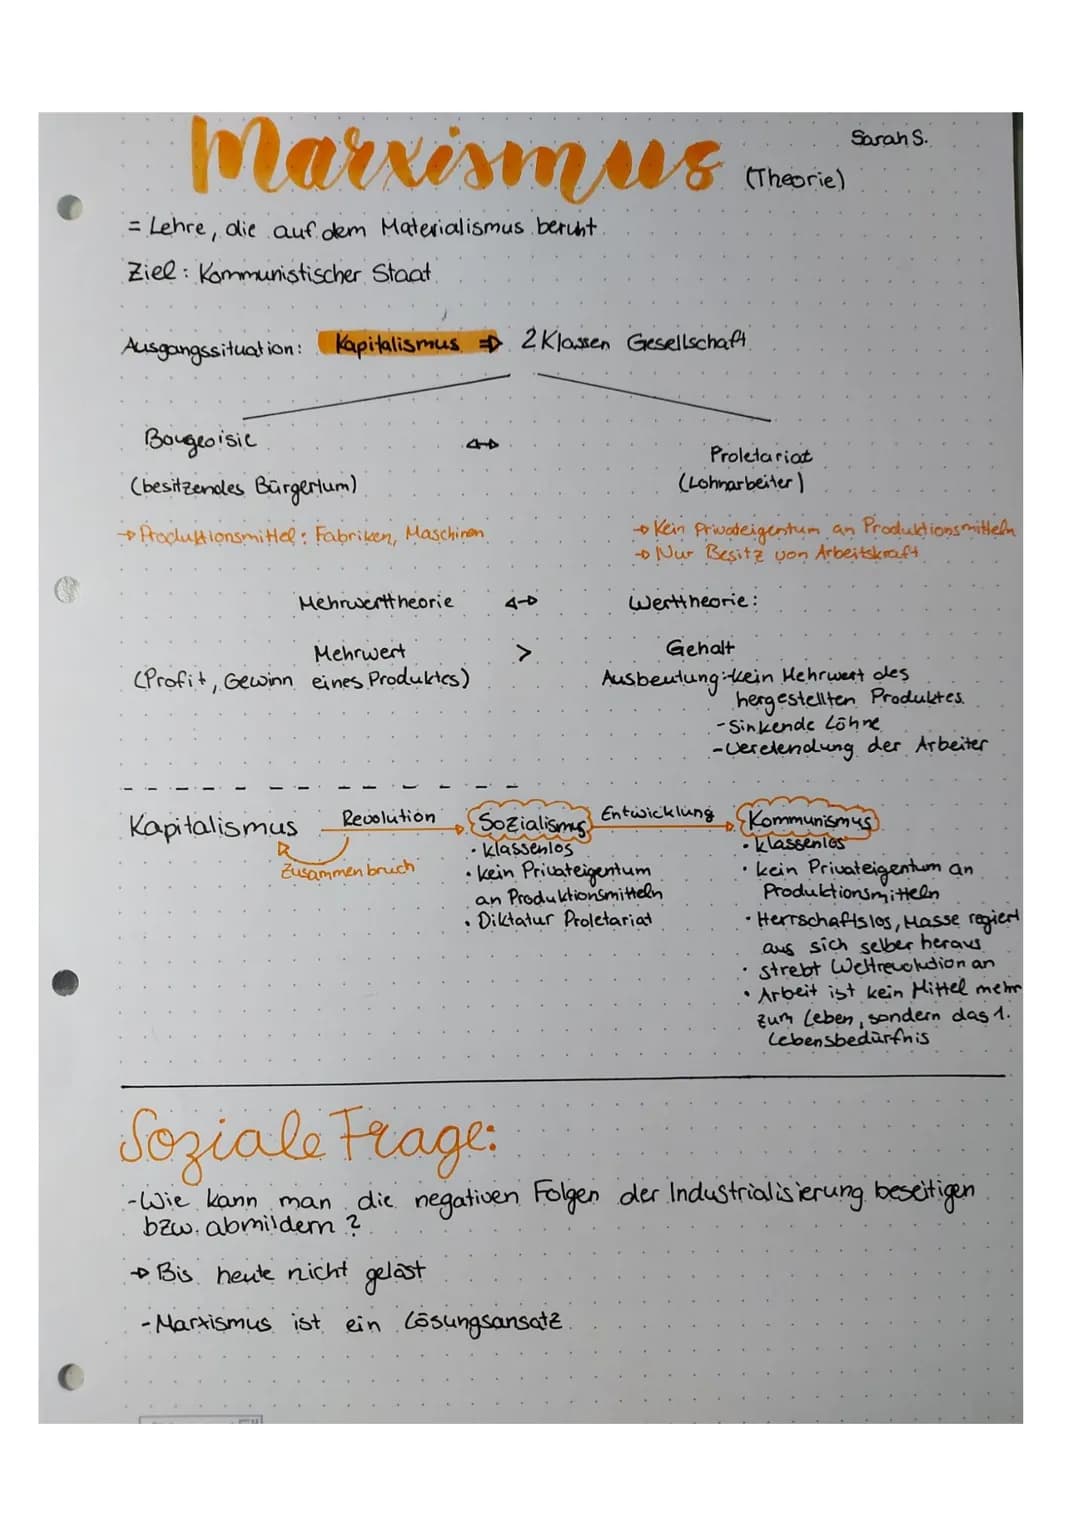 Marxismus (Theorie)
Sarah S.
= Lehre, die auf dem Materialismus beruht.
Ziel: Kommunistischer Staat
Ausgangssituation: Kapitalismus ⇒ 2 Klassen Gesellschaft
Bougeoisie ↔ Proletariat
(besitzendes Bürgertum) (Lohnarbeiter)
→ Produktionsmittel: Fabriken, Maschinen
→ Kein Privateigentum an Produktionsmitteln
→ Nur Besitz von Arbeitskraft
Mehrwerttheorie ↔ Werttheorie:
Mehrwert > Gehalt
(Profit, Gewinn eines Produktes)
Ausbeutung: kein Mehrwert des
hergestellten Produktes
- Sinkende Löhne
- Verelendung der Arbeiter
Kapitalismus Revolution Sozialismus Entwicklung Kommunismus
Zusammenbruch
• klassenlos
• kein Privateigentum
an Produktionsmitteln
• Diktatur Proletariat
• klassenlos
• kein Privateigentum an
Produktionsmitteln
• Herrschaftslos, Masse regiert
aus sich selber heraus
• strebt Weltrevolution an
• Arbeit ist kein Mittel mehr
zum Leben, sondern das 1.
Lebensbedürfnis
Soziale Frage:
- Wie kann man die negativen Folgen der Industrialisierung beseitigen
bzw. abmildern?
→ Bis heute nicht gelöst
- Marxismus ist ein Lösungsansatz